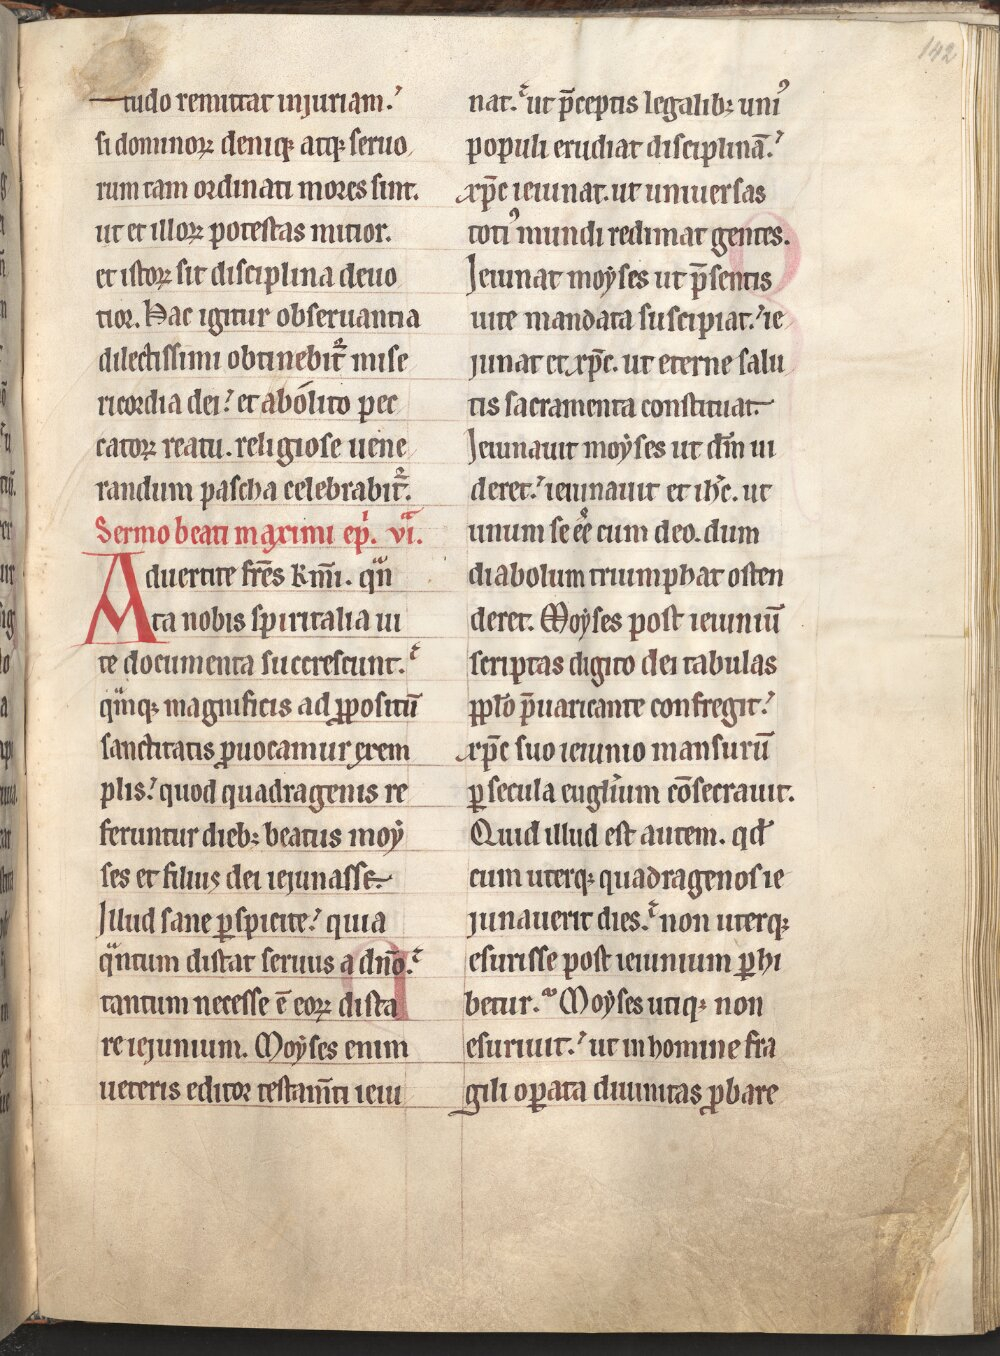 142
tudo remittat injuriam.
si dominoꝝ deniqꝫ atqꝫ seruo
rum tam ordinati mores sint.
ut et illoꝝ potestas mitior.
et istoꝝ sit disciplina deuo
tior. Hac igitur obseruantia
dilectissimi obtinebit᷑ mise
ricordia dei. et abolito pec
catoꝝ reatu. religiose uene
randum pascha celebrabit᷑.
Sermo beati maximi ep̄i. vi.
Aduertite fr̄es k̄mi. qͣn
ta nobis spiritalia ui
te documenta succrescunt.
qͥmqꝫ magnificis ad ꝓpositū
sanctitatis ꝓuocamur exem
plis. quod quadragenis re
feruntur diebꝫ beatus moẏ
ses et filius dei iejunasse.
Illud sane ꝑspicite. quia
qͣntum distat seruus a dn̄o.
tantum necesse ē eoꝝ dista
re iejunium. Moẏses enim
ueteris editor testam̄ti ieiu
nat. ut p̄ceptis legalibꝫ uniꝰ
populi erudiat disciplinā.
xp̄c ieiunat. ut uniuersas
totiꝰ mundi redimat gentes.
Jeiunat moẏses ut p̄sentis
uite mandata suscipiat. ie
junat et xp̄c. ut eterne salu
tis sacramenta constituat.
Jeiunauit moẏses ut dm̄ ui
deret. ieiunauit et ih̄c. ut
unum se ēe cum deo. dum
diabolum triumphat osten
deret. Moẏses post ieiuniū
scriptas digito dei tabulas
ppl̄o p̄uaricante confregit.
xp̄c suo ieiunio mansurū
ꝑ secula eugl̄ium cōsecrauit.
Quid illud est autem. qd̄
cum uterqꝫ quadragenos ie
junauerit dies. non uterqꝫ
esurisse post ieiunium ꝑhi
betur. Moẏses utiqꝫ non
esuriuit. ut in homine fra
gili oꝑata diuinitas ꝓbare